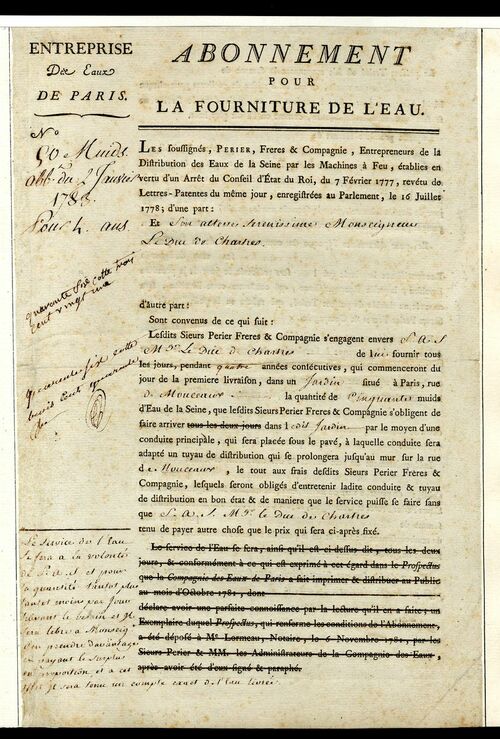 ENTREPRISE
Des Eaux
DE PARIS.
ABONNEMENT
POUR
LA FOURNITURE DE L'EAU.
N°
50 Muids.
du 2 Janvier
Pour 4 ans
LES souſſignés, PERIER, Freres & Compagnie, Entrepreneurs de la
Diſtribution des Eaux de la Seine par les Machines à Feu, établies en
vertu d'un Arrêt du Conseil d'État du Roi, du 7 Février 1777, revêtu de
Lettres-Patentes du même jour, enregiſtrées au Parlement, le 16 Juillet
1778; d'une part:
Et Son altesse serenissime Monseigneur
Le Duc de Chartres.
quarante six cotte trois
cent vingt une
d'autre part:
Sont convenus de ce qui ſuit:
Leſdits Sieurs Perier Freres & Compagnie s'engagent envers S. A. S
Mgr. Le Duc de Chartres de lui fournir tous
les jours, pendant quatre années conſécutives, qui commenceront du
jour de la premiere livraiſon, dans un Jardin ſitué à Paris, rue
de Mouceaux la quantité de Cinquante muids
d'Eau de la Seine, que leſdits Sieurs Perier Freres & Compagnie s'obligent de
faire arriver tous les deux jours dans ledit Jardin par le moyen d'une
conduite principale, qui ſera placée ſous le pavé, à laquelle conduite ſera
adapté un tuyau de diſtribution qui ſe prolongera juſqu'au mur ſur la rue
de Mouceaux, le tout aux frais deſdits Sieurs Perier Freres &
Compagnie, leſquels ſeront obligés d'entretenir ladite conduite & tuyau
de diſtribution en bon état & de maniere que le ſervice puiſſe ſe faire ſans
que S. A. S. Mgr. le Duc de Chartres
tenu de payer autre choſe que le prix qui ſera ci-après fixé.
Le ſervice de l'Eau ſe fera, ainſi qu'il eſt ci-deſſus dit, tous les deux
jours, & conformément à ce qui eſt exprimé à cet égard dans le Proſpectus
que la Compagnie des Eaux de Paris a fait imprimer & diſtribuer au Public
au mois d'Octobre 1781, dont
déclare avoir une parfaite connoiſſance par la lecture qu'il en a faite; un
Exemplaire duquel Proſpectus, qui renferme les conditions de l'Abonnement,
a été dépoſé à Me Lormeau, Notaire, le 6 Novembre 1781, par les
Sieurs Perier & MM. les Adminiſtrateurs de la Compagnie des Eaux,
après avoir été d'eux ſigné & paraphé.
Le Service de l'Eau
se fera à la volonté
de S. A. S et pour
la quantité tantot plus
tantot moins par Jour
suivant le besoin et il
sera libre à Monseigr
d'en prendre davantage
en payant le surplus
en proportion et à cet
effet il sera tenu un compte exact de l'eau livrée.